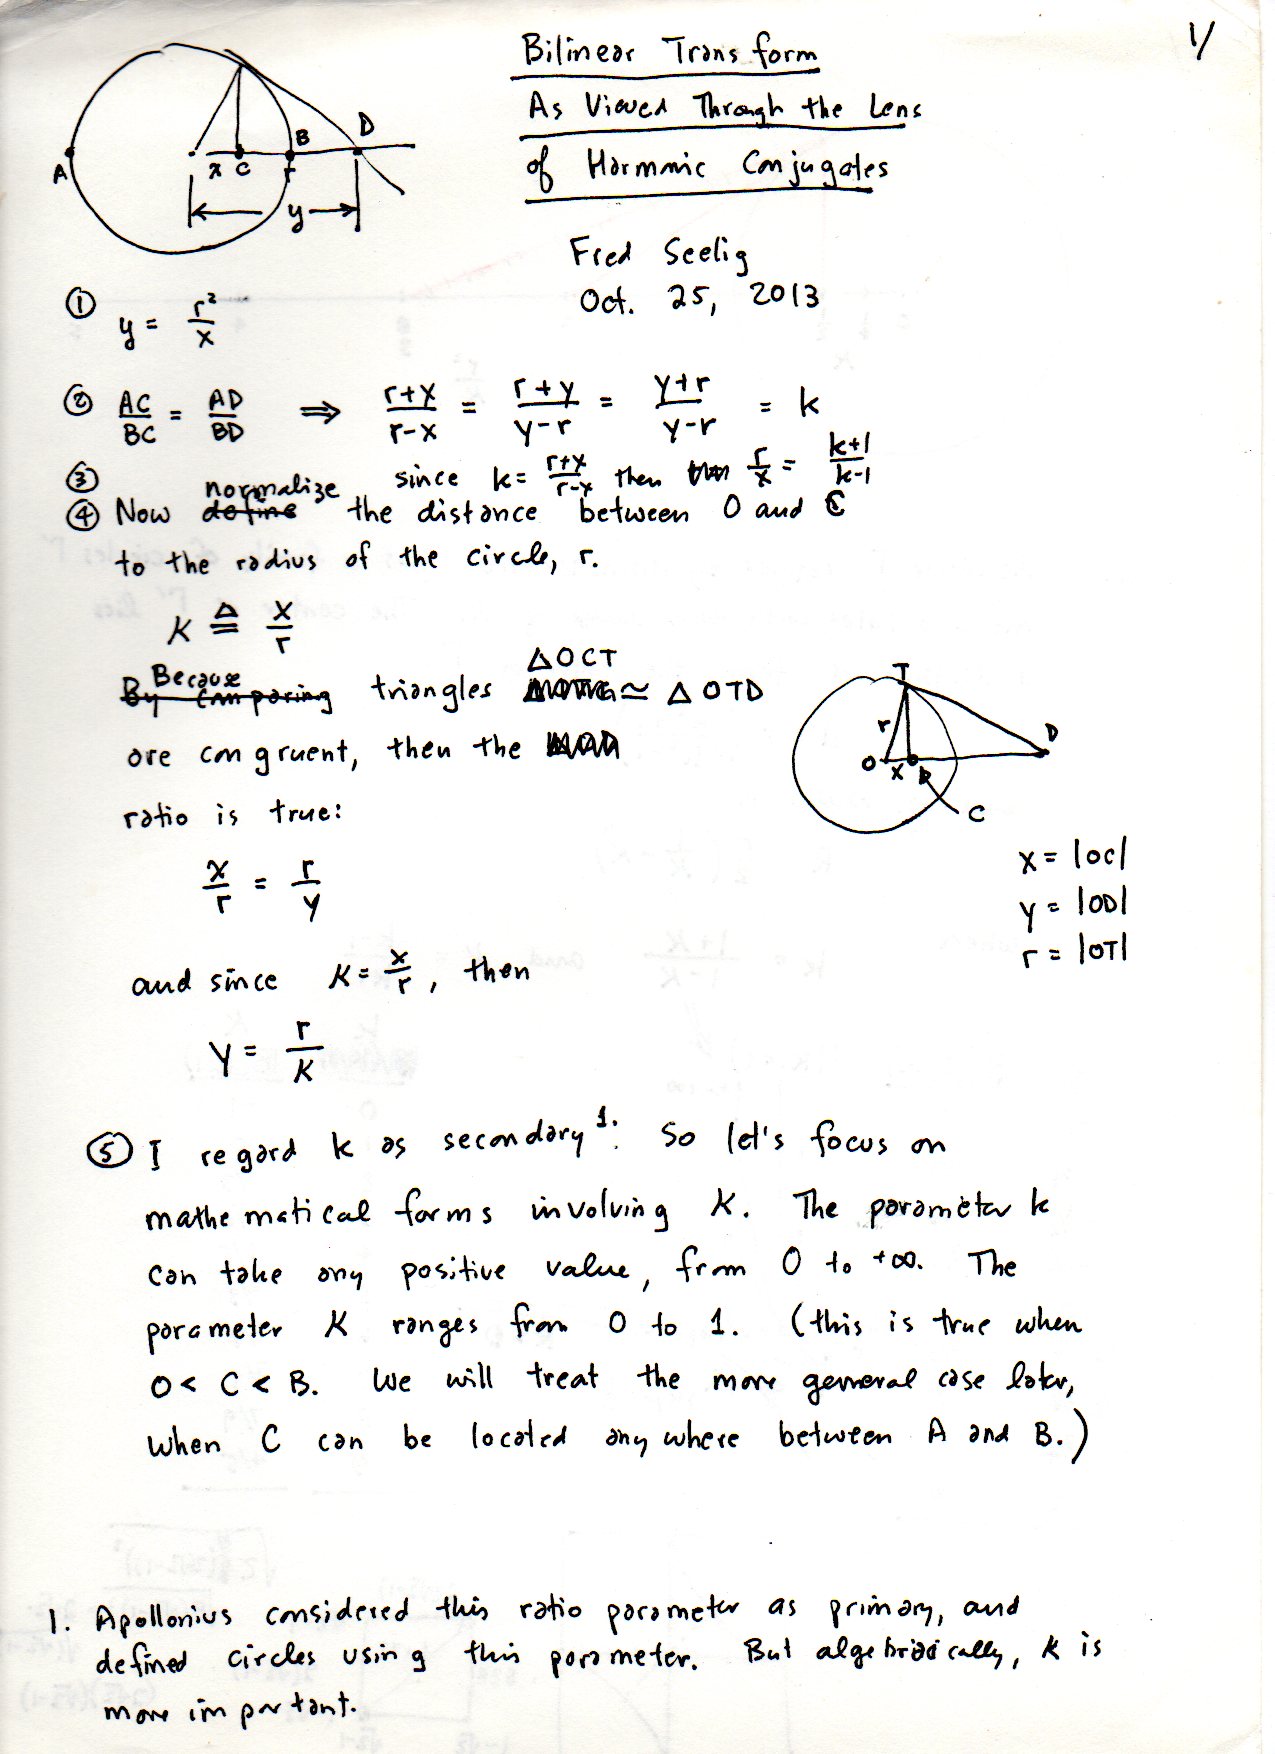 1/
Bilinear Transform
As Viewed Through the Lens
of Harmonic Conjugates
Fred Seelig
Oct. 25, 2013
A x C B r D
y
① y = r²/x
② AC/BC = AD/BD ⇒ (r+x)/(r-x) = (r+y)/(y-r) = (y+r)/(y-r) = k
③ since k = (r+x)/(r-x) then r/x = (k+1)/(k-1)
normalize
④ Now define the distance between O and C
to the radius of the circle, r.
K ≜ x/r
Because ΔOCT
By comparing triangles ≃ Δ OTD
are congruent, then the
ratio is true:
T
r
O x D
C
x = |OC|
y = |OD|
r = |OT|
x/r = r/y
and since K = x/r, then
y = r/K
⑤ I regard k as secondary¹. So let's focus on
mathematical forms involving K. The parameter k
can take any positive value, from 0 to +∞. The
parameter K ranges from 0 to 1. (this is true when
O < C < B. We will treat the more general case later,
when C can be located anywhere between A and B.)
1. Apollonius considered this ratio parameter as primary, and
defined circles using this parameter. But algebraically, K is
more important.